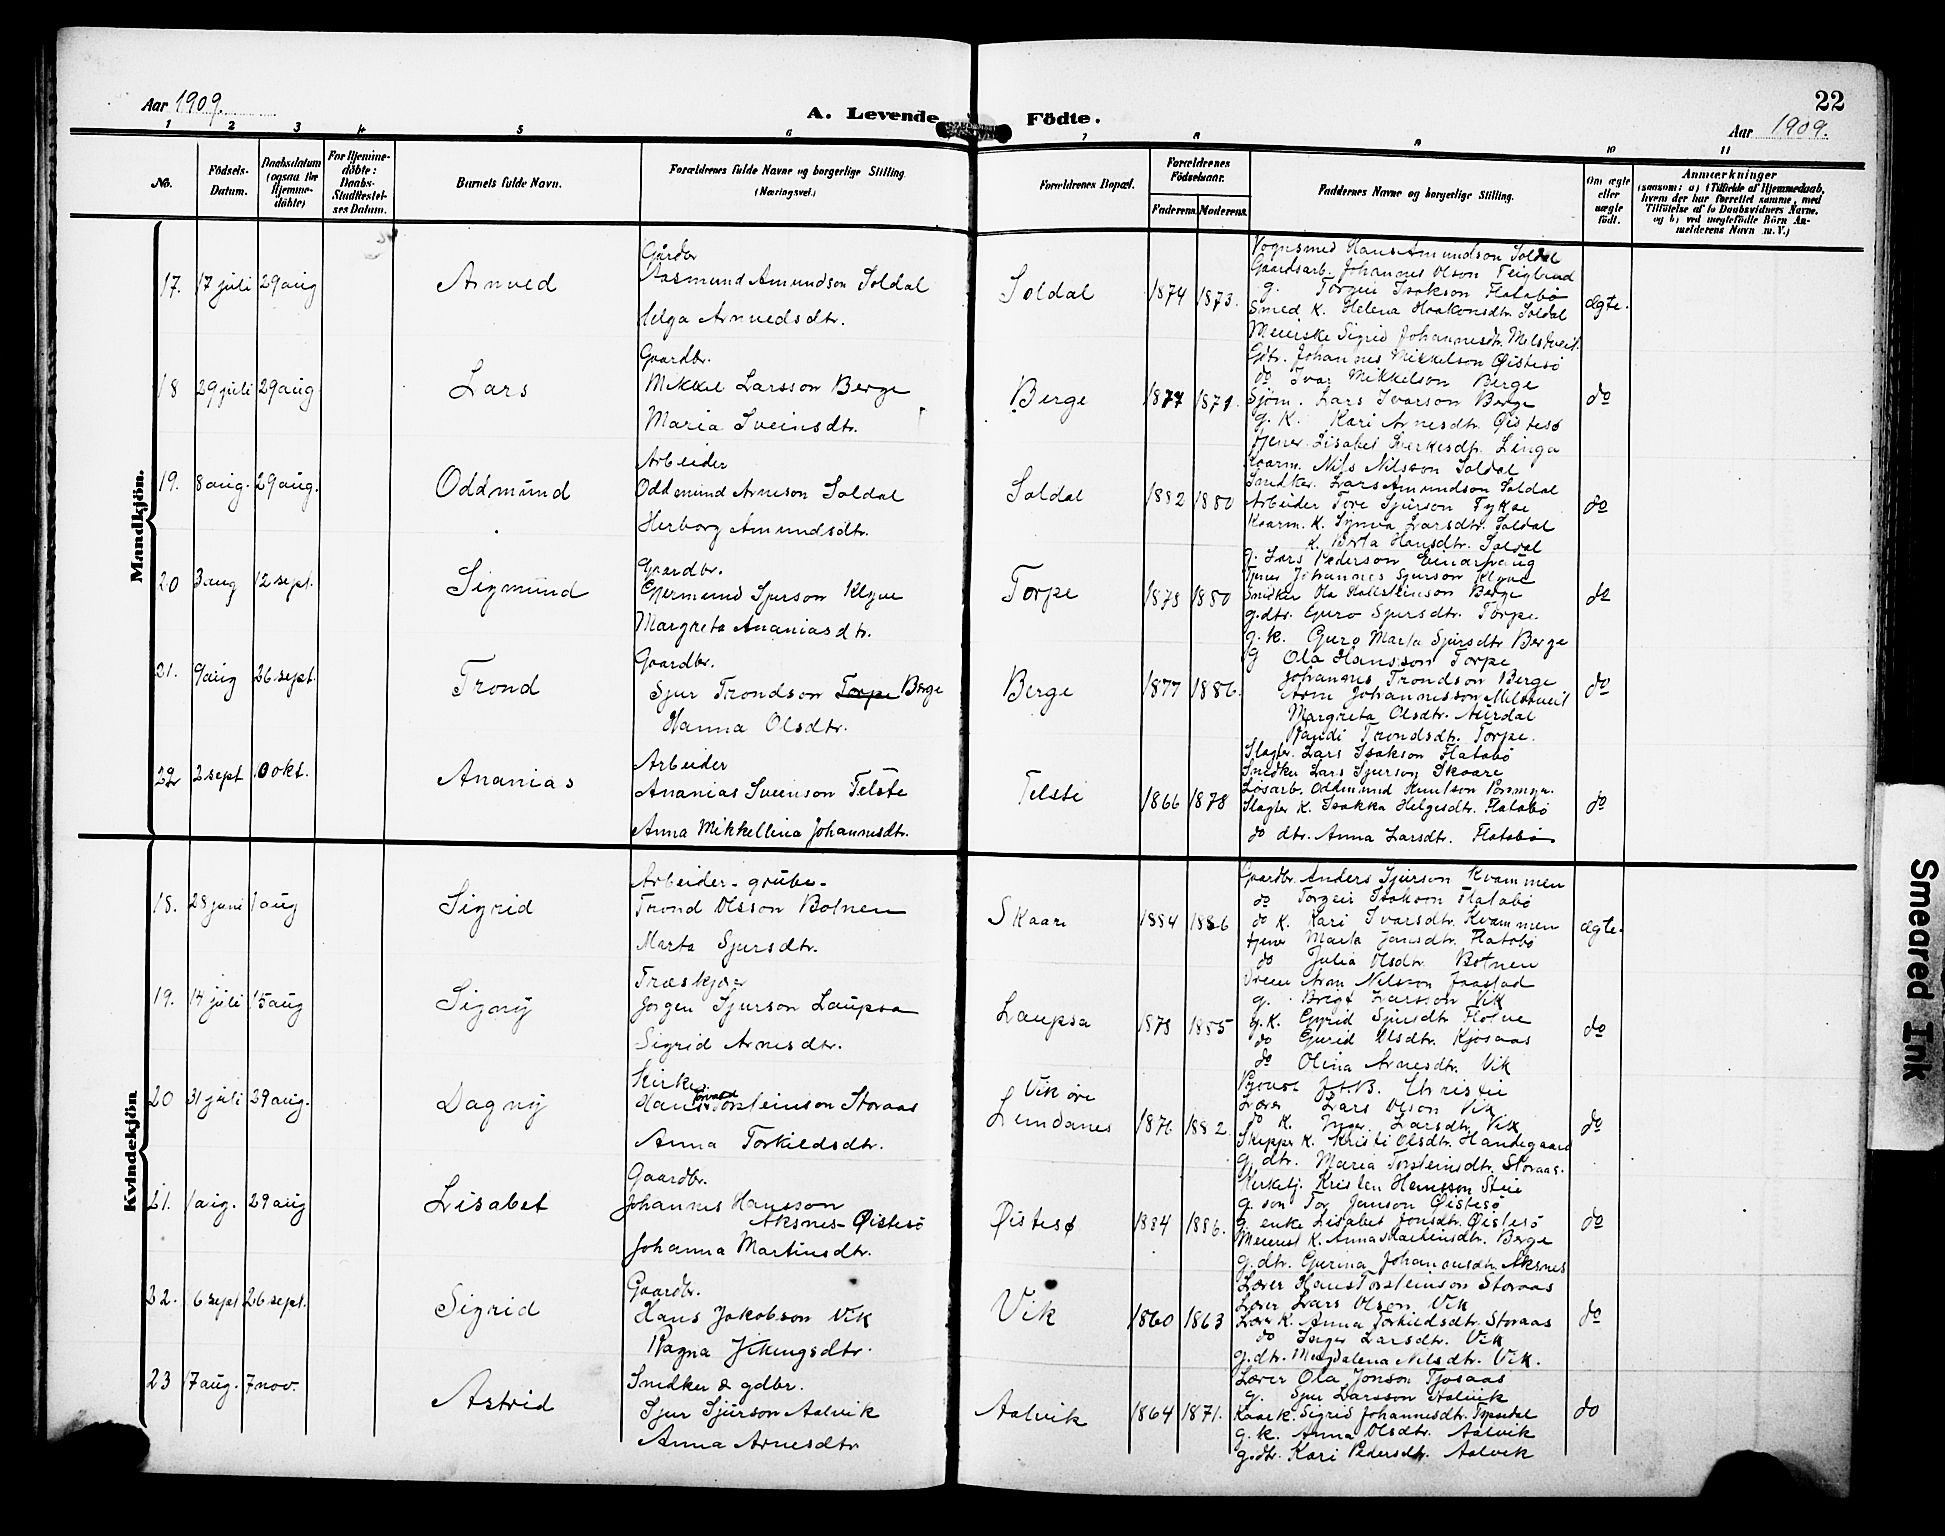 22
Aar 1909.
A. Levende Födte.
Aar 1909.
1 2 3 4 5 6 7 8 9 10 11
No.
Födsels-Datum.
Daabsdatum (ogsaa for Hjemme-döbte)
For Hjemme-döbte: Daabs-Stadfæstel-ses Datum.
Barnets fulde Navn.
Forældrenes fulde Navne og borgerlige Stilling (Næringsvei.)
Forældrenes Bopæl.
Forældrenes Födselsaar.
Faderens. Moderens.
Faddernes Navne og borgerlige Stilling.
Om ægte eller uægte födt.
Anmærkninger
(saasom: a) i Tilfælde af Hjemmedaab,
hvem der har forrettet samme, med
Tilföielse af to Daabsvidners Navne,
og b) ved uægtefödte Börn An-
melderens Navn m. V.)
Mandkjön.
17. 17 juli 29 aug Arnved
Gårdbr
Aasmund Amundson Soldal
Helga Arnvedsdtr.
Soldal 1874 1873.
Vognsmed Hans Amundson Soldal
Gaardsarb. Johannes Olson Teigland
g. Torgeir Isakson Flatabø
Smed k. Helena Haakonsdtr. Soldal
Meierske Sigrid Johannesdtr. Melstveit.
ægte.
18 29 juli 29 aug Lars
Gaardbr.
Mikkel Larsson Berge
Maria Sveinsdtr.
Berge 1877 1871.
Gdbr. Johannes Mikkelson Øistesø
do Ivar Mikkelson Berge
Sjøm. Lars Ivarson Berge
g. k. Kari Arnesdtr. Øistesø
tjener Lisabet Sverkesdtr. Linga
do
19. 8 aug. 29 aug. Oddmund
Arbeider
Oddmund Arneson Soldal
Herborg Amundsdtr.
Soldal 1882 1880
Kaarm. Nils Nilsson Soldal
Snedker. Lars Amundson Soldal
Arbeider Tore Sjurson Fykse
Kaarm. k. Synva Larsdtr. Soldal
k. Brita Hansdtr. Soldal
do
20 3 aug 12 sept. Sigmund
Gaardbr.
Gjermund Sjurson Klyve
Margreta Ananiasdtr.
Torpe 1878 1880
g. Lars Pederson
Tjener Johannes Sjurson Klyve
Snidker Ola Hallsteinson Berge
g. dtr. Guro Sjursdtr. Torpe.
g. k. Guro Marta Sjursdtr Berge
do
21. 9 aug 26 sept. Trond
Gaardbr.
Sjur Trondson Torpe Berge
Hanna Olsdtr.
Berge 1877 1886.
g Ola Hansson Torpe
Johannes Trondson Berge
Johannesson Melstveit
Margreta Olsdtr. Aurdal
Randi Trondsdtr. Torpe.
do
22 2 sept 10 okt. Ananias
Arbeider
Ananias Sveinson Telste
Anna Mikkellina Johannesdtr.
Telste 1866 1878
Slagter. Lars Isakson Flatabø
Snedker Lars Sjurson Skaare
Løsarb. Oddmund Knutson
Slagter k. Isakka Helgesdtr. Flatabø
do dtr. Anna Larsdtr. Flatabø
do
Kvindekjön
18. 28 juni 1 aug Sigrid
Arbeider - grube -
Trond Olsson Botnen
Marta Sjursdtr.
Skaare 1884 1886
Gaardbr. Anders Sjurson Kvammen
do Torgeir Isakson Flatabø
do k. Kari Ivarsdtr. Kvammen
tjener Marta Jansdtr. Flatabø
do Julia Olsdtr. Botnen
ægte.
19. 14 juli 15 aug Signy
Træskjær
Jørgen Sjurson Laupsa
Sigrid Arnesdtr.
Laupsa 1878 1885
Nilsson Jaastad
g. Brigt Larsson Vik
g. k. Gyrid Sjursdtr Flotve
do Gurid Olsdtr. Kjosaas
do Olina Arnesdtr. Vik
do
20 31 juli 29 aug. Dagny
Kirkes.
Hans Torvald Torsteinson Storaas
Anna Torkildsdtr.
Vikøre
Lundanes 1876 1882
Provst J.A.B. Christie
Lærer Lars Olson Vik
do k. Inger Larsdtr. Vik
Skipper k. Kristi Olsdtr. Handegaard
g. dtr. Maria Torsteinsdtr. Storaas.
do
21. 1 aug. 29 aug Lisabet
Gaardbr.
Johannes Hansson
Aksnes - Øistesø
Johanna Martinsdtr.
Øistesø 1884 1886.
Kirketj. Kristen Hansson Steie
g. søn Tor Janson Øistesø
g. enke Lisabet Jonsdtr. Øistesø
Meierist k. Anna Martinsdtr. Berge
g. dtr. Gurina Johannesdtr. Aksnes
do
22. 6 sept 26 sept. Sigrid
Gaardbr.
Hans Jakobson Vik
Ragna Vikingsdtr.
Vik 1860 1863
Lærer Hans Torsteinson Storaas
Lærer Lars Olson Vik
Lærer k. Anna Torkildsdtr. Storaas
do Inger Larsdtr. Vik
g. dtr. Magdalena Nilsdtr. Vik.
do
23 17 aug. 7 nov. Astrid
Snedker & gdbr.
Sjur Sjurson Aalvik
Anna Arnesdtr
Aalvik 1864 1871.
Lærer Ola Jonson Tjosaas
g. Sjur Larsson Aalvik
Kaark. Sigrid Johannesdtr. Tyssedal
g. k. Anna Olsdtr. Aalvik
g. dtr. Kari Pedersdtr. Aalvik
do
Smeared Ink